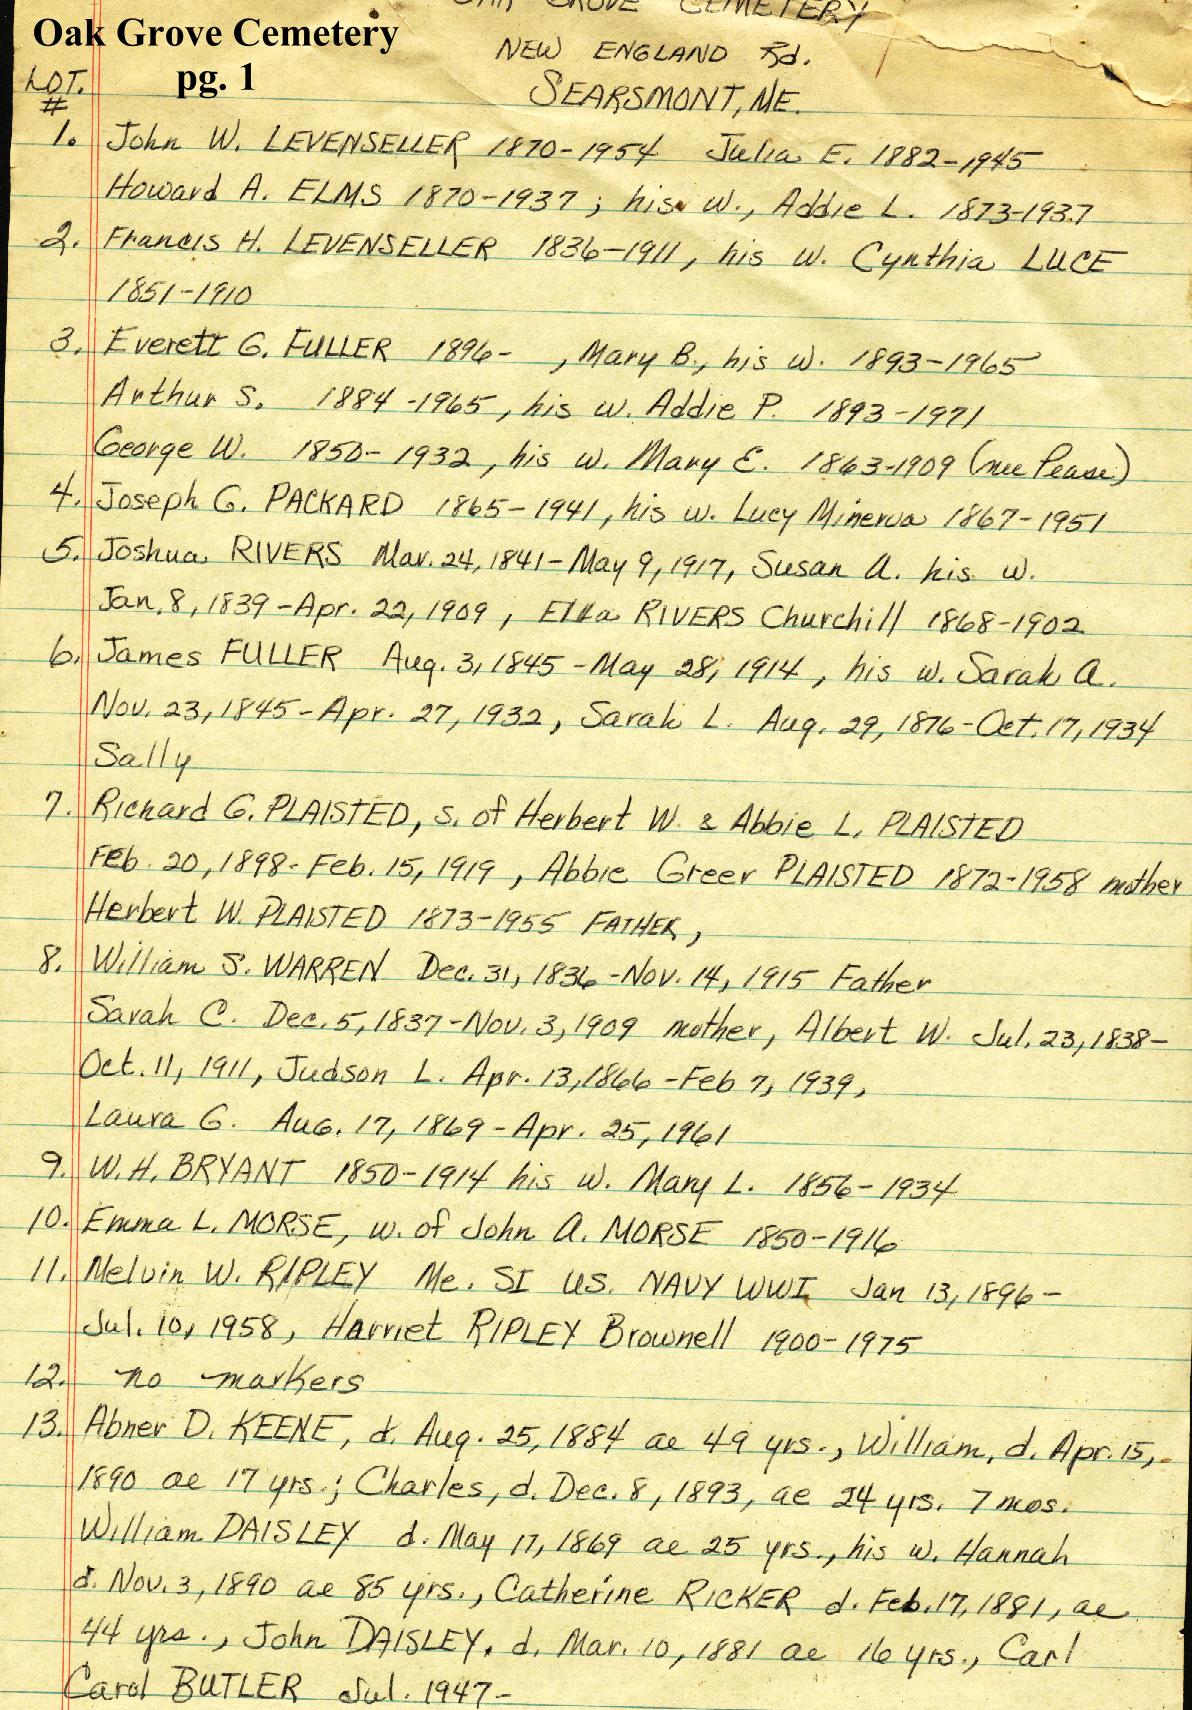 OAK GROVE CEMETERY
Oak Grove Cemetery
pg. 1
NEW ENGLAND Rd.
SEARSMONT, ME.
LOT. #
1. John W. LEVENSELLER 1870-1954 Julia E. 1882-1945
Howard A. ELMS 1870-1937; his w., Addie L. 1873-1937
2. Francis H. LEVENSELLER 1836-1911, his w. Cynthia LUCE
1851-1910
3. Everett G. FULLER 1896- , Mary B., his w. 1893-1965
Arthur S. 1884-1965, his w. Addie P. 1893-1971
George W. 1850-1932, his w. Mary E. 1863-1909 (nee Pease)
4. Joseph G. PACKARD 1865-1941, his w. Lucy Minerva 1867-1951
5. Joshua RIVERS Mar. 24, 1841-May 9, 1917, Susan A. his w.
Jan. 8, 1839-Apr. 22, 1909, Ella RIVERS Churchill 1868-1902
6. James FULLER Aug. 3, 1845-May 28, 1914, his w. Sarah A.
Nov. 23, 1845-Apr. 27, 1932, Sarah L. Aug. 29, 1876-Oct. 17, 1934
Sally
7. Richard G. PLAISTED, s. of Herbert W. & Abbie L. PLAISTED
Feb. 20, 1898-Feb. 15, 1919, Abbie Greer PLAISTED 1872-1958 mother
Herbert W. PLAISTED 1873-1955 FATHER,
8. William S. WARREN Dec. 31, 1836-Nov. 14, 1915 Father
Sarah C. Dec. 5, 1837-Nov. 3, 1909 mother, Albert W. Jul. 23, 1838-
Oct. 11, 1911, Judson L. Apr. 13, 1866-Feb 7, 1939,
Laura G. Aug. 17, 1869-Apr. 25, 1961
9. W. H. BRYANT 1850-1914 his w. Mary L. 1856-1934
10. Emma L. MORSE, w. of John A. MORSE 1850-1916
11. Melvin W. RIPLEY Me. SI US. NAVY WWI Jan 13, 1896-
Jul. 10, 1958, Harriet RIPLEY Brownell 1900-1975
12. no markers
13. Abner D. KEENE, d. Aug. 25, 1884 ae 49 yrs., William, d. Apr. 15,
1890 ae 17 yrs.; Charles, d. Dec. 8, 1893, ae 24 yrs. 7 mos.
William DAISLEY d. May 17, 1869 ae 25 yrs., his w. Hannah
d. Nov. 3, 1890 ae 85 yrs., Catherine RICKER d. Feb. 17, 1881, ae
44 yrs., John DAISLEY, d. Mar. 10, 1881 ae 16 yrs., Carl
Carol BUTLER Jul. 1947-